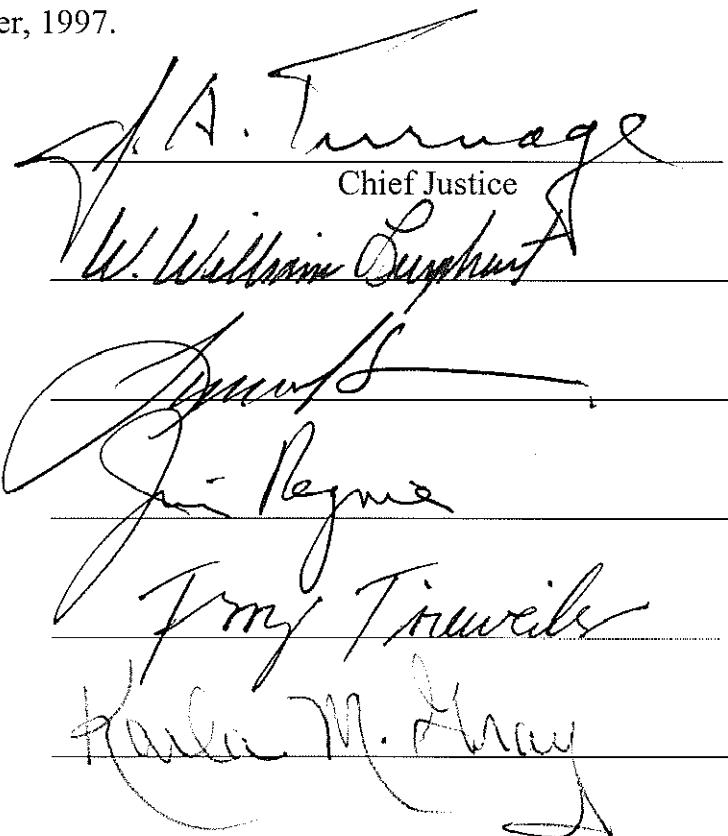 er, 1997.
J. A. Turnage
Chief Justice
W. William Leaphart
Jim Regnier
Terry Trieweiler
Karla M. Gray